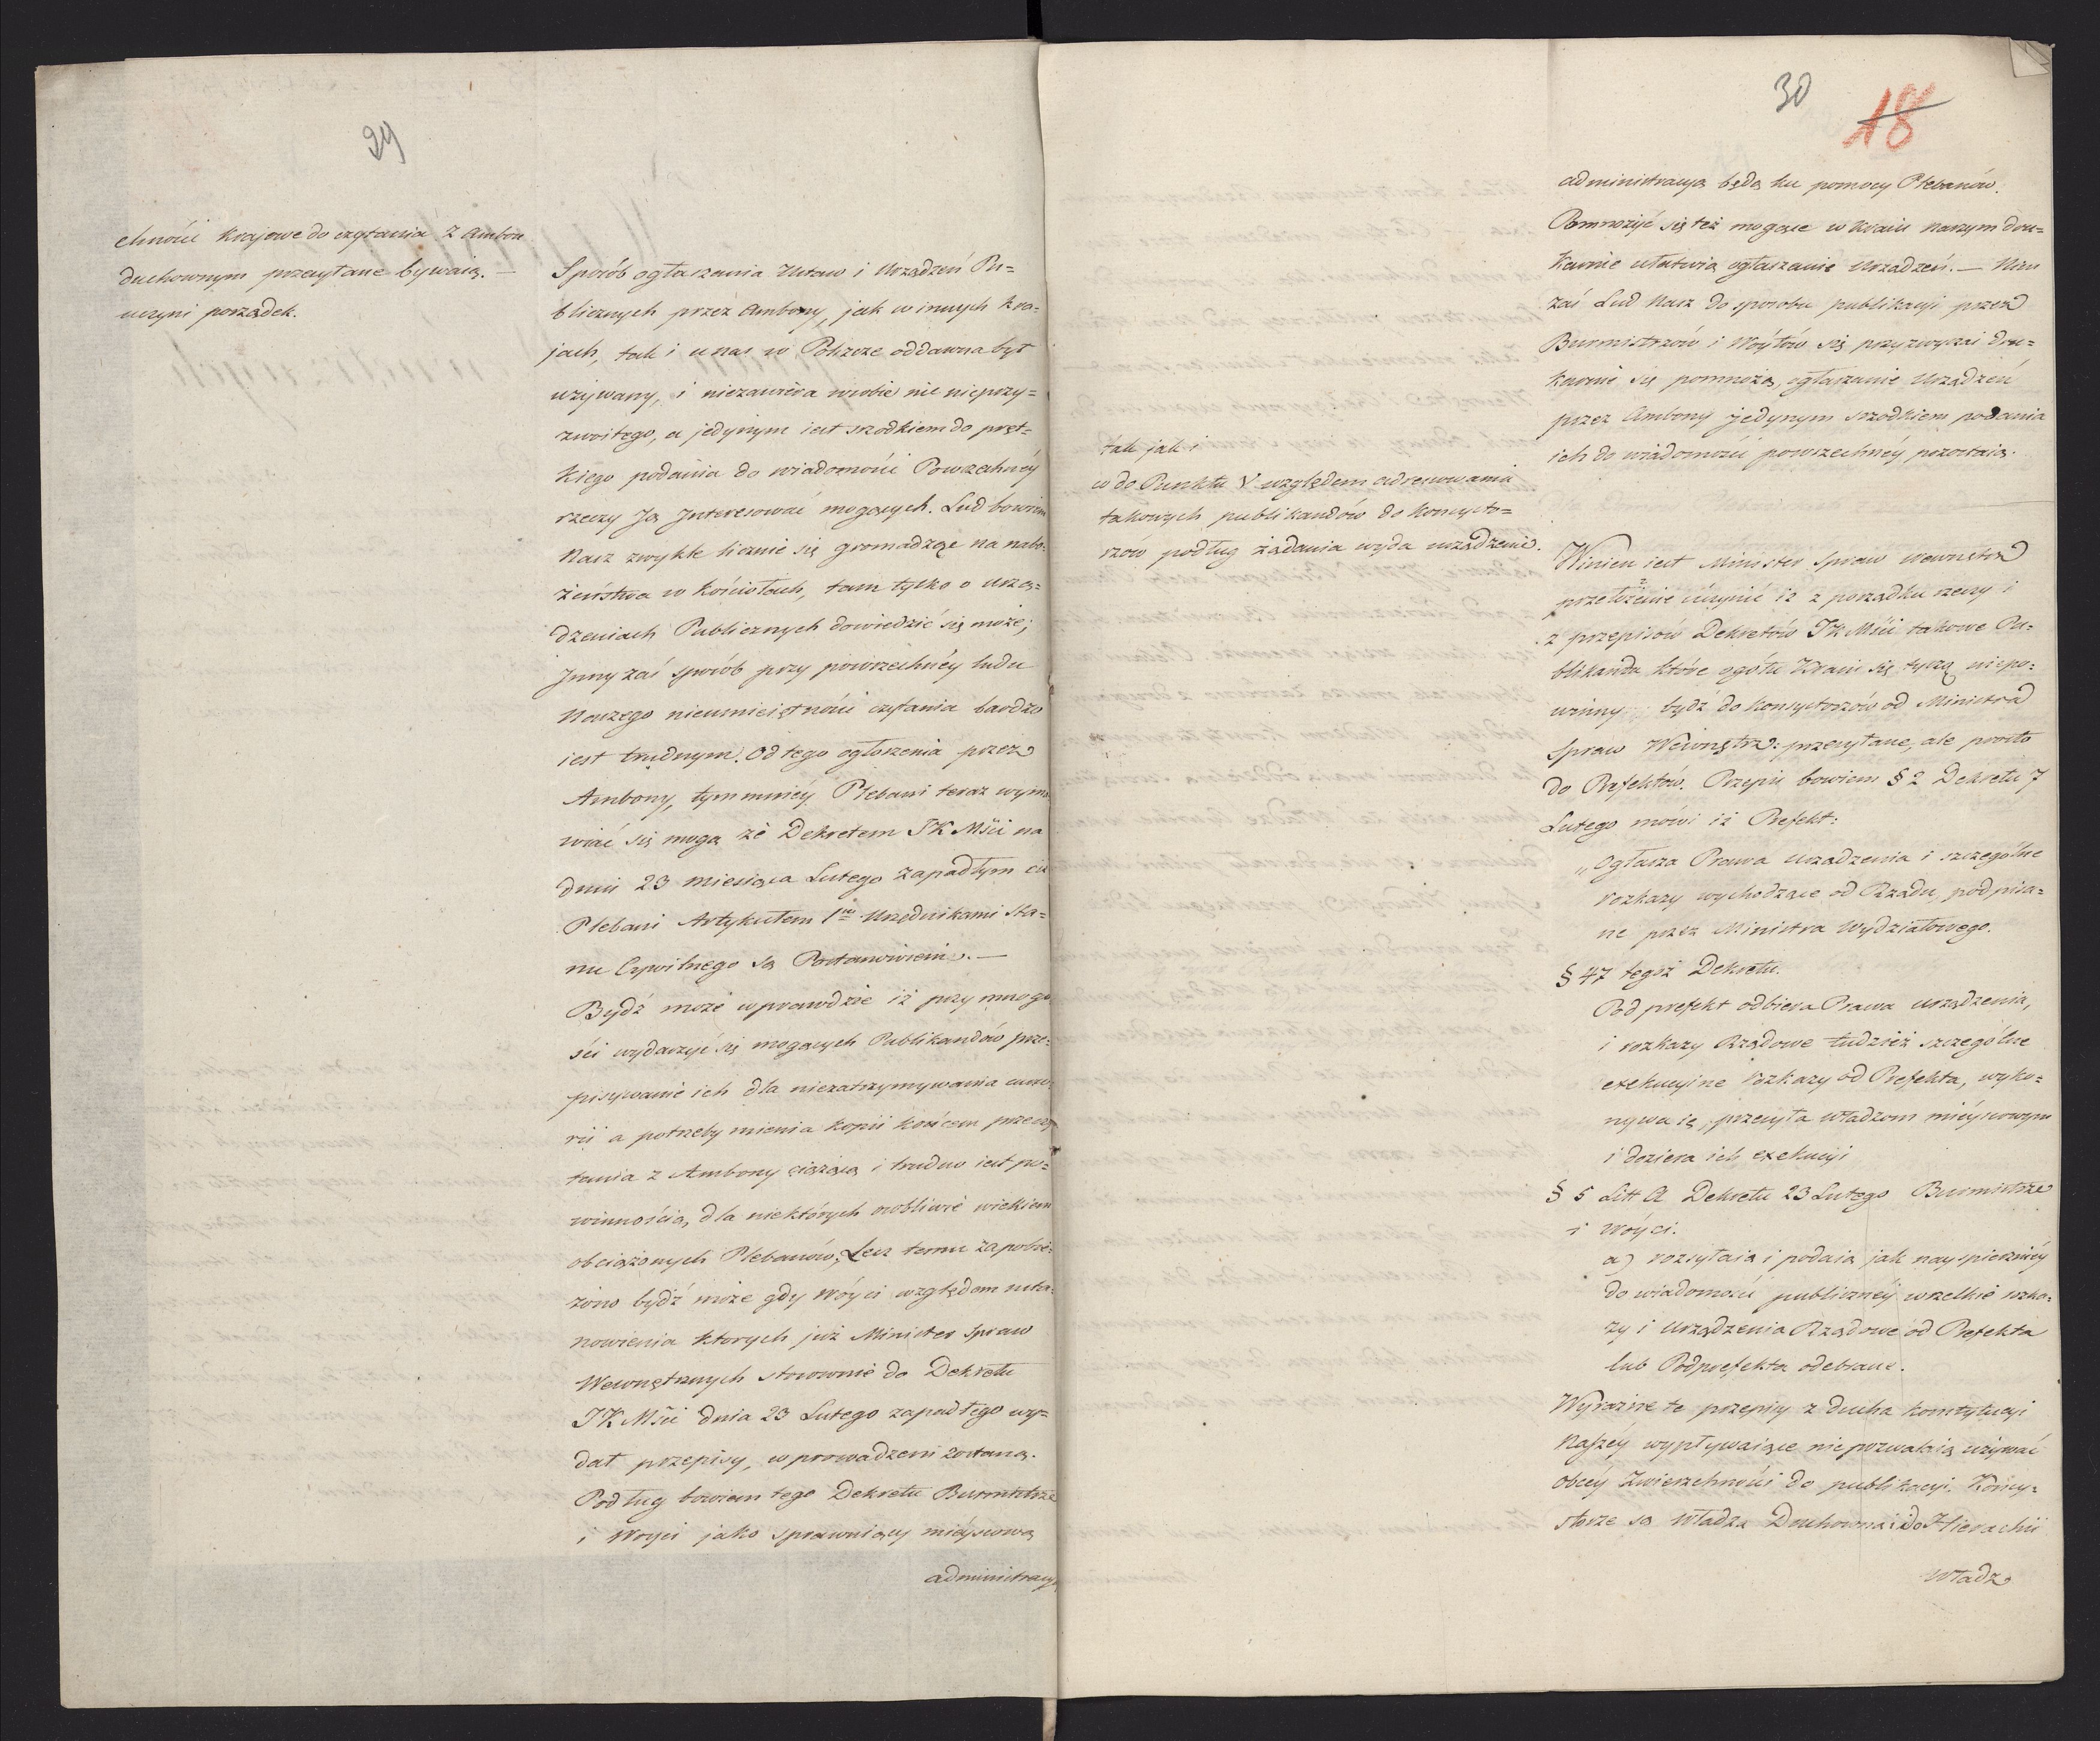 29
chności krajowe do czytania z Ambon
duchownym przesyłane bywaią. —
uczyni porządek.
Sposób ogłaszania Ustaw i Urządzeń Pu=
blicznych przez Ambony, jak w innych kra=
jach, tak i u nas w Polszcze oddawna był
używany, i niezawiera w sobie nic nieprzy=
zwoitego, a jedynym iest szodkiem do pręt=
kiego podania do wiadomości Powszechnéy
rzeczy Ją Interesować mogących. Lud bowiem
Nasz zwykle licznie się gromadząc na nabo=
żeństwa w kościołach, tam tylko o urzą=
dzeniach Publicznych dowiedzić się może;
Inny zaś sposób przy powszechnéy ludu
Naszego nieumieiętności czytania bardzo
iest trudnym. Od tego ogłoszenia przez
Ambony, tym mniey Plebani teraz wyma
wiać się mogą że Dekretem JK Mści na
dniu 23 miesiąca Lutego zapadłym ciż
Plebani Artykułem 1m Urzędnikami Sta=
nu Cywilnego są Postanowieni. —
Bydź może wprawdzie iż przy mnogo
ści wydarzyć się mogących Publikandów prze=
pisywanie ich dla niezatrzymywania curo
rii a potrzeby mienia kopii końcem przeczy
tania z Ambony ciążącą i trudno iest po=
winnością, dla niektórych osobliwie wiekiem
obciążonych Plebanów; Lecz temu zapobie=
żono bydź może gdy Wóyci względem usta=
nowienia ktorych już Minister Spraw
Wewnętrznych stosownie do Dekretu
JK Mści dnia 23 Lutego zapadłego wy=
dał przepisy, wprowadzeni zostaną.
Podług bowiem tego Dekretu Burmistrze
i Woyci jako sprawuiący mieyscową
administracyą
30
18
administracyą będą ku pomocy Plebanów.
Pomnożyć się też mogące w kraiu naszym dru=
karnie ułatwią ogłaszanie Urządzeń. — Nim
zaś Lud Nasz do sposobu publikacyi przez
Burmistrzów i Wóytów się przyzwyczai dru=
karnie się pomnożą, ogłaszanie Urządzeń
przez Ambony jedynym szodkiem podania
ich do wiadomości powszechnéy pozostaią.
tak jak i
co do Punktu V względem adresowania
takowych publikandów do Konsysto=
rzów podług żądania wyda urządzenie.
Winien iest Minister Spraw Wewnętrz
przełożenie uczynić iż z porządku rzeczy i
z przepisów Dekretów JK Mści takowe Pu=
blikanda które ogółu Kraiu się tyczą niepo=
winny bydź do Konsystorzów od Ministra
Spraw Wewnętrz: przesyłane, ale prosto
do Prefektów. Przepis bowiem § 2 Dekretu 7
Lutego mówi iż Prefekt:
„Ogłasza Prawa urządzenia i szczególne
rozkazy wychodzące od Rządu, podpisa=
ne przez Ministra Wydziałowego.
§ 47 tegoż Dekretu.
Podprefekt odbiera Prawa urządzenia,
i rozkazy Rządowe tudzież szczególne
exekucyine rozkazy od Prefekta, wyko=
nywa ię, przesyła władzom mieyscowym
i doziera ich exekucyi
§ 5 Litt A Dekretu 23 Lutego Burmistrze
i Wóyci.
a) rozsyłaią i podaią jak nayspieszniéy
do wiadomości publicznéy wszelkie rozka=
zy i urządzenia Rządowe od Prefekta
lub Podprefekta odebrane.
Wyraźne te przepisy z ducha konstytucyi
Naszéy wypływaiące niepozwalaią używać
obcey Zwierzchności do publikacyi. Konsy=
storze są Władzą Duchowną i do Hierachii
Władz